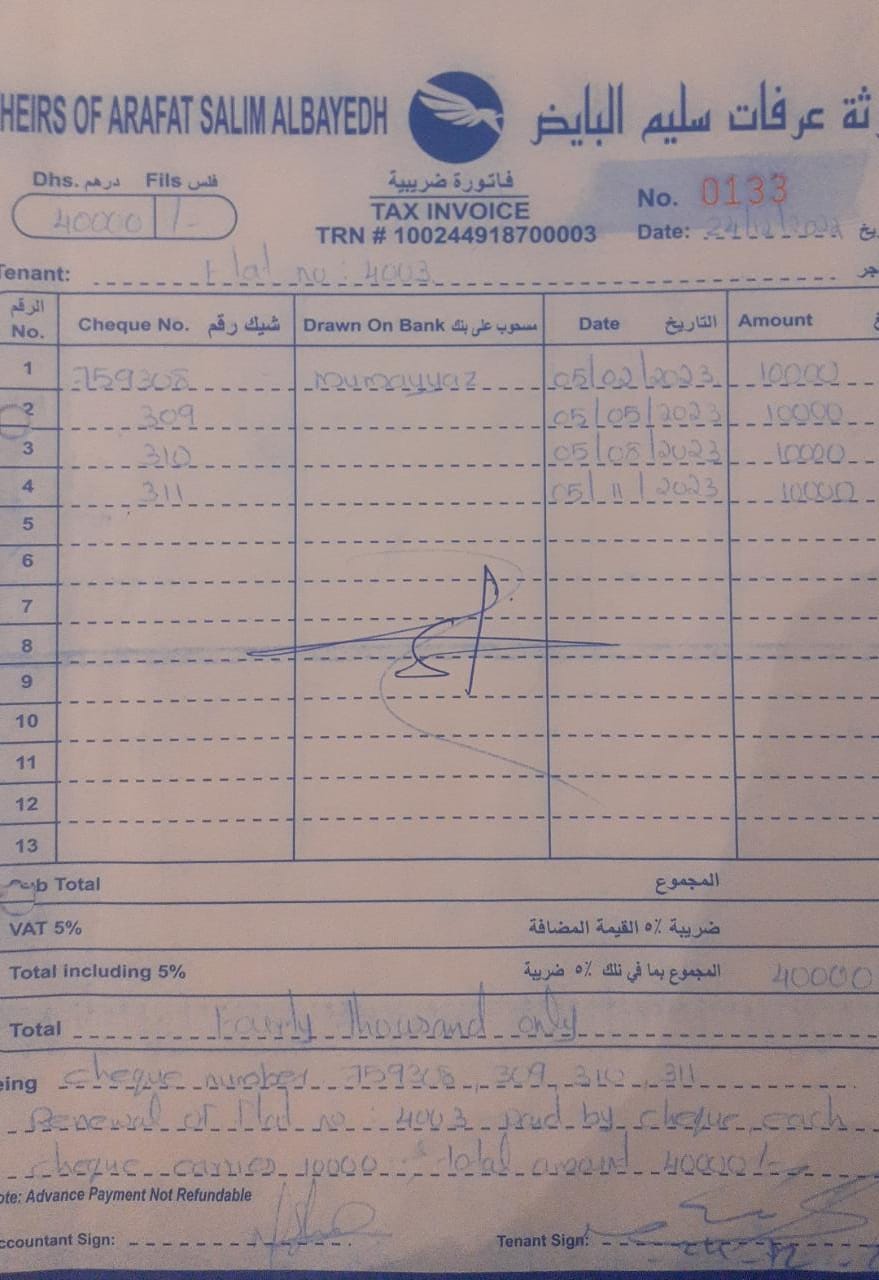 HEIRS OF ARAFAT SALIM ALBAYEDH ثة عرفات سليم البايض
Dhs. درهم Fils فلس
40000 /-
فاتورة ضريبية
TAX INVOICE
TRN # 100244918700003
No. 0133
Date: 24/12/2022
Tenant: Flat no : 4003 جر
الرقم No. Cheque No. شيك رقم Drawn On Bank مسحوب على بنك Date التاريخ Amount
1 759308 mumayyaz 05/02/2023 10000
2 309 05/05/2023 10000
3 310 05/08/2023 10000
4 311 05/11/2023 10000
5
6
7
8
9
10
11
12
13
b Total المجموع
VAT 5% ضريبة ٥٪ القيمة المضافة
Total including 5% المجموع بما في ذلك ٥٪ ضريبة 40000
Total Fourty thousand only
eing cheque number 759308, 309, 310, 311
Renewal of Flat no : 4003 paid by cheque each
cheque carries 10000 Total amount 40000/-
ote: Advance Payment Not Refundable
ccountant Sign: Tenant Sign: